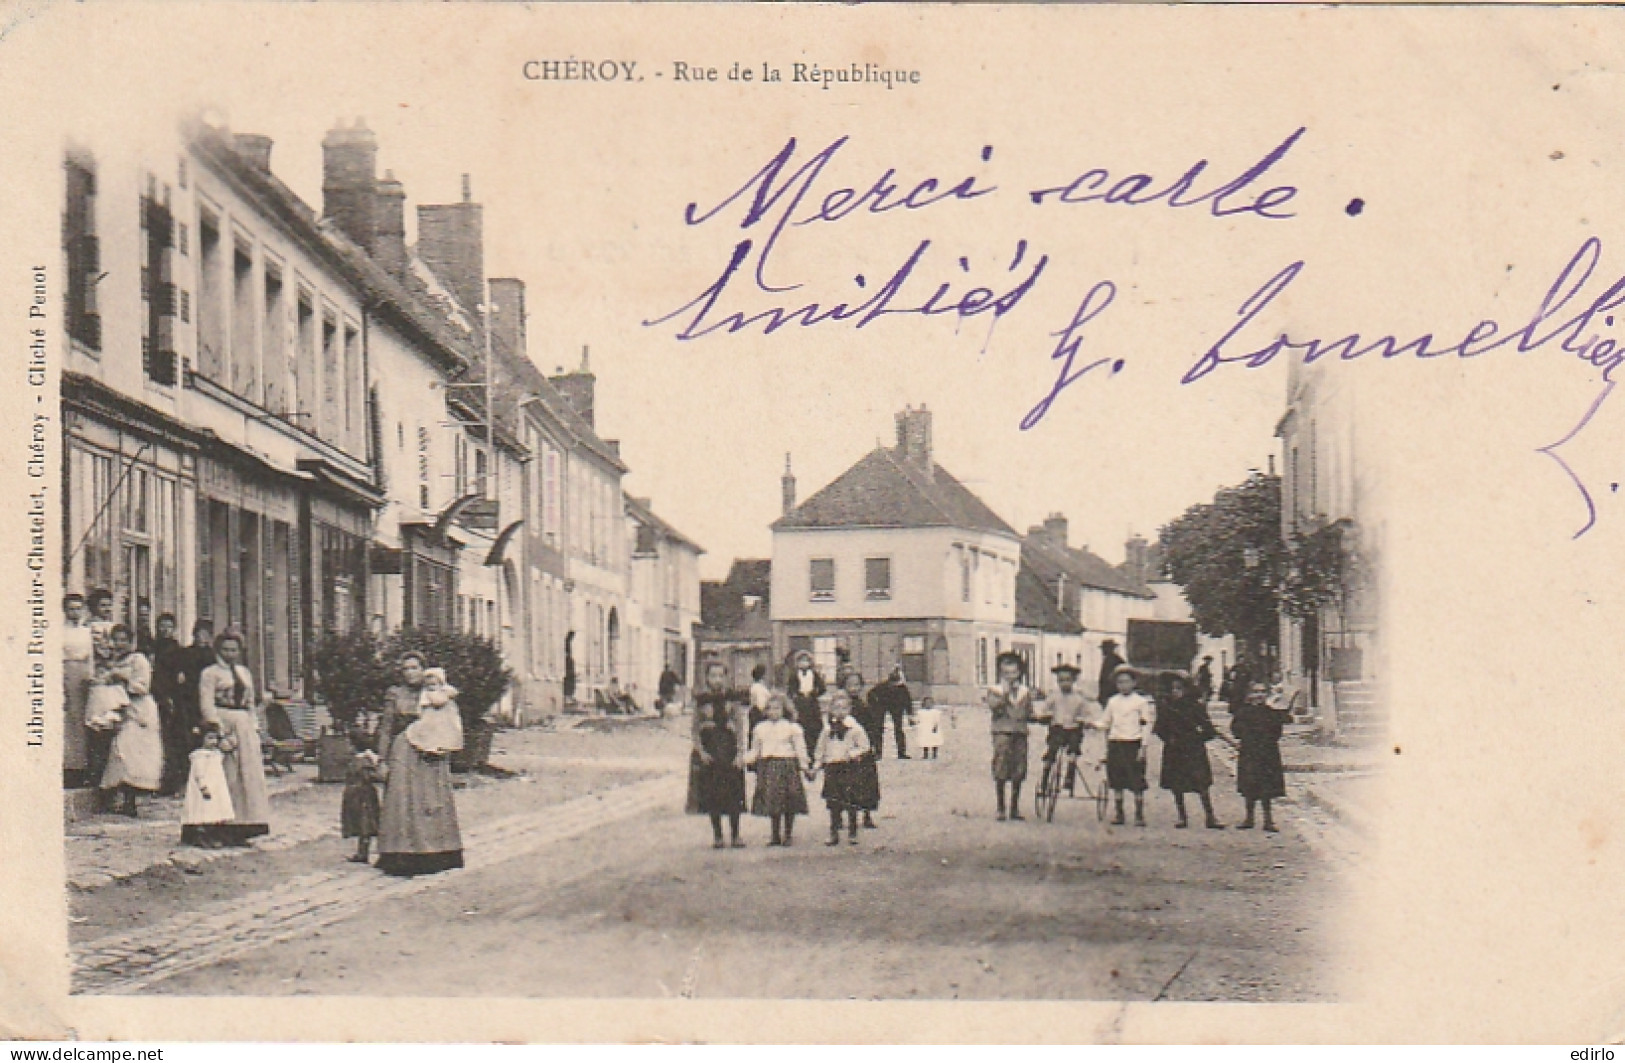 CHÉROY. - Rue de la République
Merci carte.
Amitiés
G. Tonnellier
Librairie Regnier-Chatelet, Chéroy - Cliché Penot
www.delcampe.net
edirlo